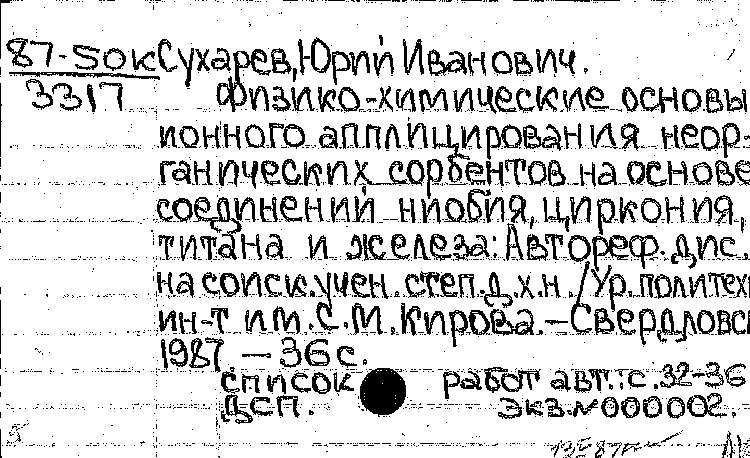 87-50к Сухарев, Юрий Иванович.
3317 Физико-химические основы
ионного апплицирования неор-
ганических сорбентов на основе
соединений ниобия, циркония,
титана и железа: Автореф. дис.
на соиск. учен. степ. д.х.н. / Ур. политехн
ин-т им. С.М. Кирова. - Свердловск
1987 - 36 с.
список работ авт.: с. 32-36
ДСП. экз. № 000002.